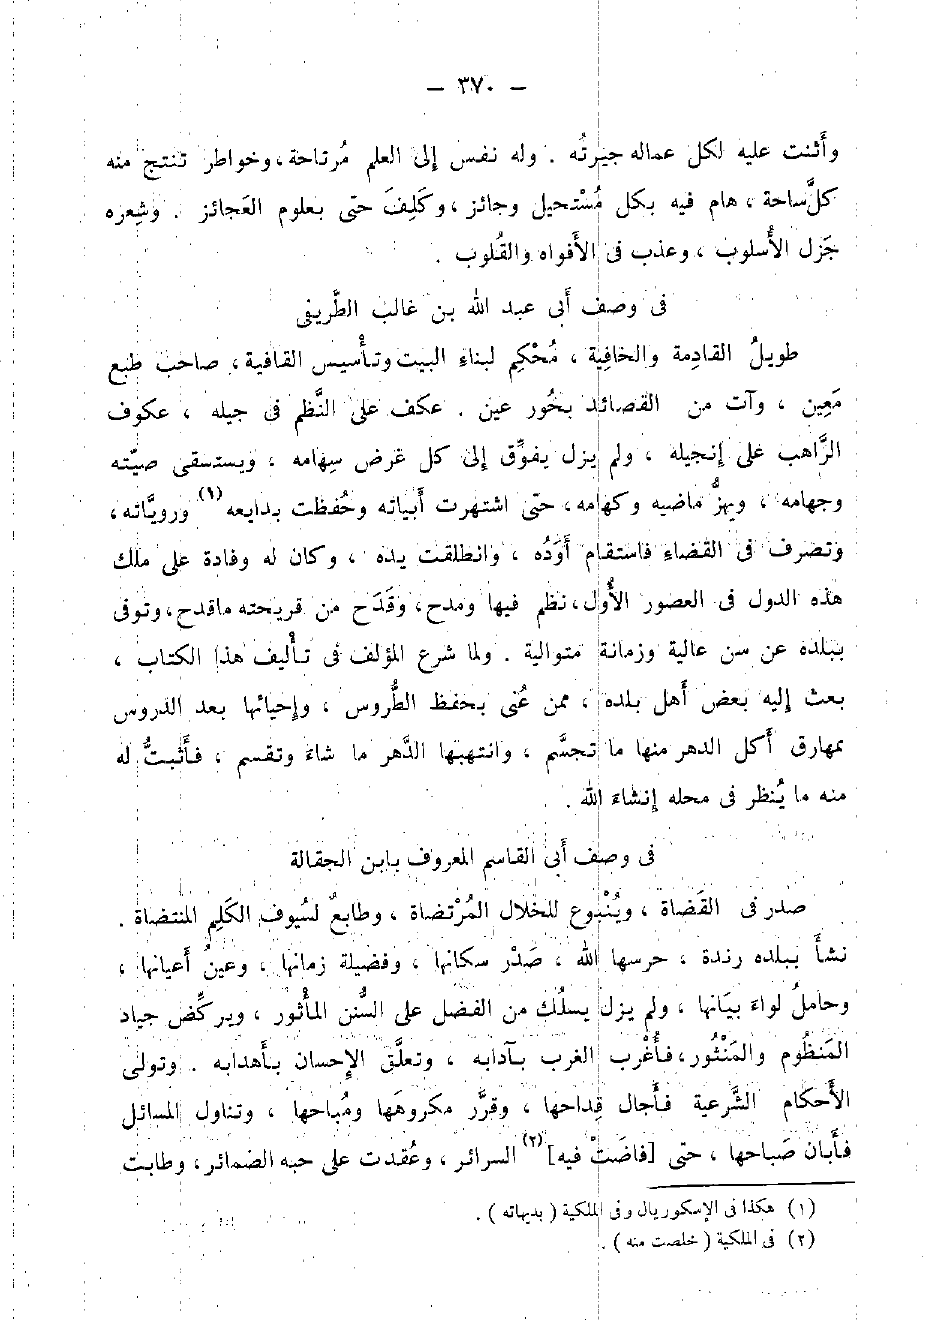 — ٣٧٠ —
وأَثنت عليه لكل عماله جيرتُه . وله نفس إلى العلم مُرتاحة ، وخواطر تنتج منه
كلَّ ساحة ، هام فيه بكل مُسْتحيل وجائز ، وكَلِفَ حتى بعلوم العَجائز . وشِعره
جَزل الأُسلوب ، وعذب فى الأَفواه والقُلوب .
فى وصف أَبى عبد الله بن غالب الطَّريفى
طويلُ القادِمة والخافِية ، مُحْكِم لبناءِ البيت وتأْسيس القافية ، صاحب طبع
مَعِين ، وآت من القصائد بحُور عين . عكف على النَّظم فى جيله ، عكوف
الرَّاهب على إنجيله ، ولم يزل يفوِّق إلى كل غرض سِهامه ، ويستسقى صيّته
وجهامه ، ويهزُّ ماضيه وكهامه ، حتى اشتهرت أَبياته وحُفظت بدايعه (١) ورويَّاته ،
وتصرف فى القضاءِ فاستقام أَوَدُه ، وانطلقت يده ، وكان له وفادة على ملك
هذه الدول فى العصور الأُول ، نظم فيها ومدح ، وقَدَح من قريحته ماقدح ، وتوفى
ببلده عن سن عالية وزمانة متوالية . ولما شرع المؤلف فى تأْليف هذا الكتاب ،
بعث إليه بعض أَهل بلده ، ممن عُنى بحفظ الطُّروس ، وإحيائها بعد الدروس
بمهارق أَكل الدهر منها ما تجسَّم ، وانتهبها الدَّهر ما شاءَ وتقسم ، فأَثبتُّ له
منه ما يُنظر فى محله إنشاءَ الله .
فى وصف أَبى القاسم المعروف بابن الحقالة
صدر فى القَضاة ، ويُنْبوع للخلال المُرْتضاة ، وطابعٌ لسُيوف الكَلِم المنتضاة .
نشأَ ببلده رندة ، حرسها الله ، صَدْر سكانها ، وفضيلة زمانها ، وعينُ أَعيانها ،
وحاملُ لواءَ بيَانها ، ولم يزل يسلُك من الفضل على السُّنن المأْثور ، ويركِّض جياد
المَنظُوم والمَنْثُور ، فأُغْرب الغرب بآدابه ، وتعلَّق الإحسان بأَهدابه . وتولى
الأَحكام الشَّرعية فأَجال قِداحها ، وقرَّر مكروهَها ومُباحها ، وتناول المسائل
فأَبان صَباحها ، حتى [فاضَتْ فيه] (٢) السرائر ، وعُقدت على حبه الضمائر ، وطابت
(١) هكذا فى الإسكوريال وفى الملكية ( بديهاته ) .
(٢) فى الملكية ( خلصت منه ) .